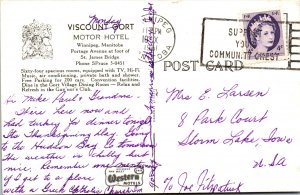 Monday
VISCOUNT GORT
MOTOR HOTEL
Winnipeg, Manitoba
Portage Avenue at foot of
St. James Bridge
Phone SPruce 5-0451
Sixty-four spacious rooms, equipped with TV, Hi-Fi
Music, air conditioning, private bath and shower.
Free Parking for 200 cars. Convention Facilities.
Dine in the Cosy Village Dining Room — Relax and
Refresh in the
In Mike Paul's Grandma
Stare here now and
had turkey for dinner tonight
The Thanksgiving play. Going
to the Hudson Bay Co tomorrow
The weather is chilly but
nice,
if I get to a place
with a
Western
HOTELS
WINNIPEG
PM
SUPP
YOU
COMMUNITY CHEST
POST CARD
Mrs E. Larsen
8 Park Court
Storm Lake, Iowa
U.S.A
To Joe Fitzpatrick